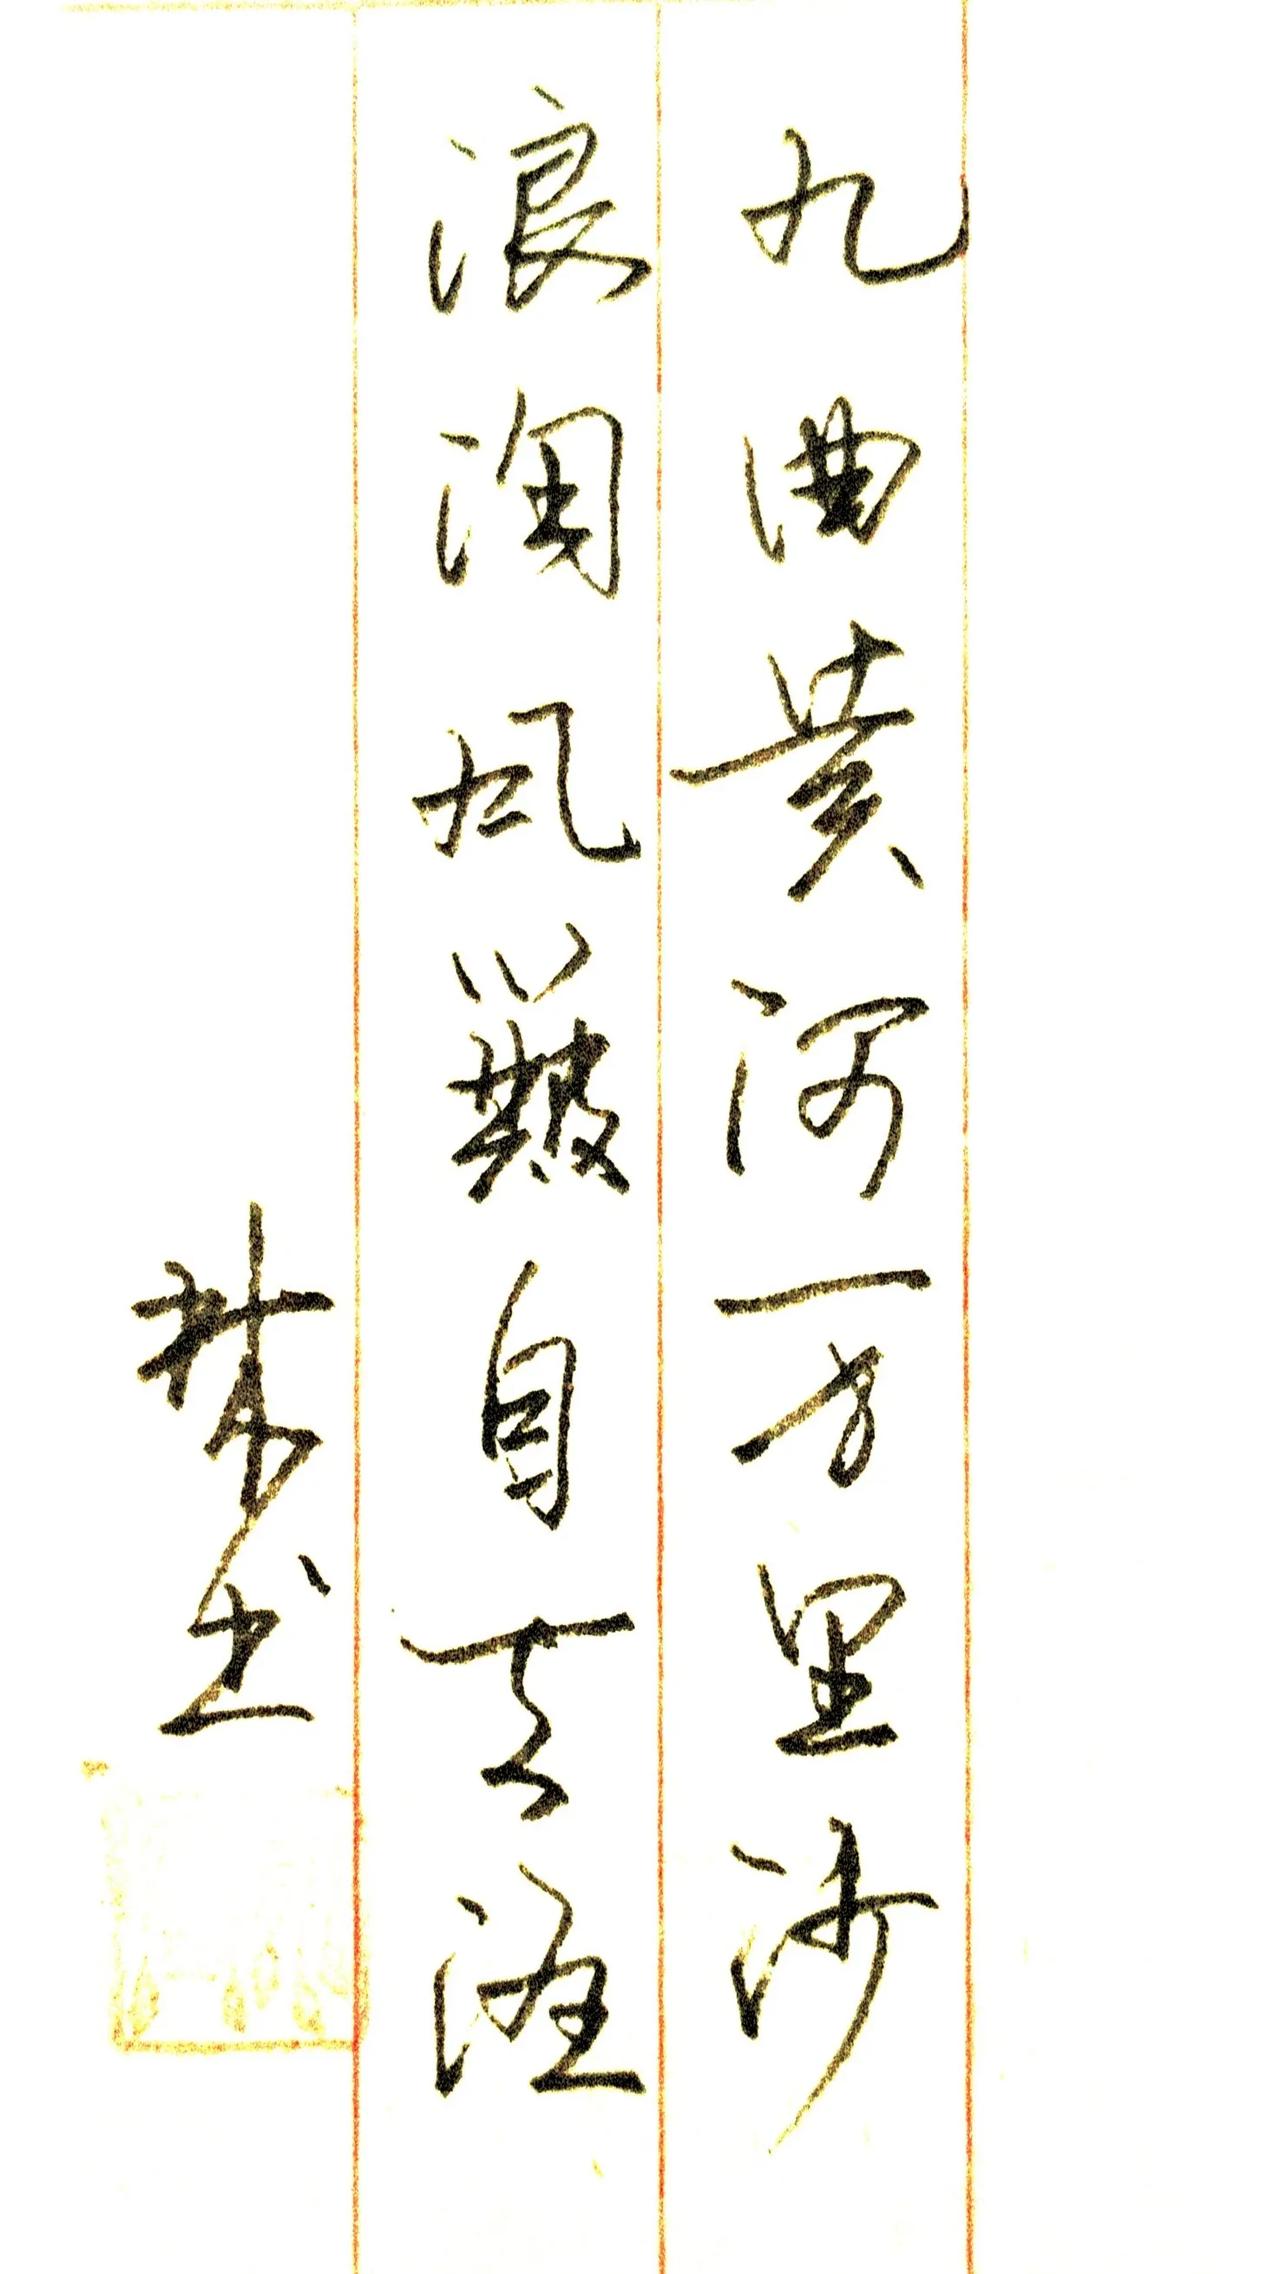 九曲黄河万里沙
浪淘风簸自天涯
书